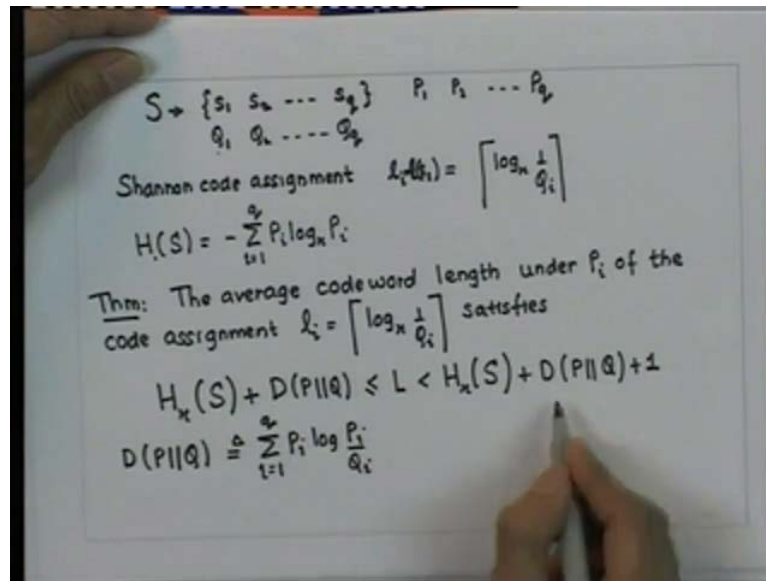 S → {s₁ s₂ --- s_q} P₁ P₂ --- P_q
Q₁ Q₂ ---- Q_q
Shannon code assignment = ⌈log_r 1/Q_i⌉
H_r(S) = - Σ_{i=1}^{q} P_i log_r P_i
Thm: The average codeword length under P_i of the
code assignment l_i = ⌈log_r 1/Q_i⌉ satisfies
H_r(S) + D(P||Q) ≤ L < H_r(S) + D(P||Q) + 1
D(P||Q) ≜ Σ_{i=1}^{q} P_i log P_i/Q_i